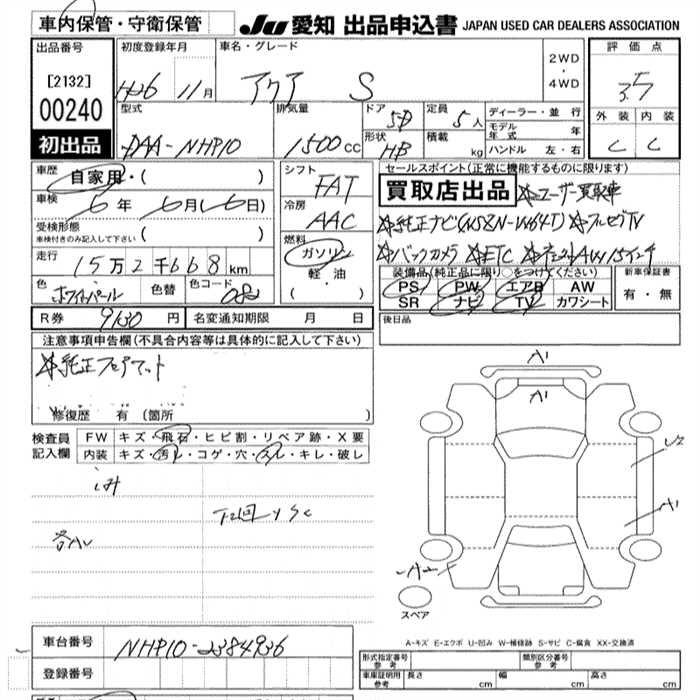 車内保管・守衛保管
JU 愛知 出品申込書 JAPAN USED CAR DEALERS ASSOCIATION
出品番号 初度登録年月 車名・グレード 2WD・4WD 評価点
[2132] H26 11月 アクア S 3.5
00240 型式 排気量 ドア 5D 定員 5人 ディーラー・並行 外装 内装
初出品 DAA-NHP10 1500cc 形状 HB 積載 kg モデル年式 年 C C
ハンドル 左・右
車歴 自家用・( ) シフト FAT セールスポイント(正常に機能するものに限ります)
車検 6年 6月(6日) 冷房 AAC 買取店出品 ☆ユーザー買取車
受検形態 車検付きのみ記入して下さい ( ) ☆純正ナビ(NSZN-W64T) ☆フルセグTV
走行 15万2千668km 燃料 ガソリン・軽油・( ) ☆バックカメラ ☆ETC AW15インチ
色 ホワイトパール 色替 色コード 082 装備品(純正品に限り○をつけてください) 新車保証書
PS PW エアB AW 有・無
SR ナビ TV カワシート
R券 9130円 名変通知期限 月 日 後日品
注意事項申告欄(不具合内容等は具体的に記入して下さい)
☆純正フロアマット
修復歴 有(箇所 )
検査員記入欄 FW キズ・飛石・ヒビ割・リペア跡・X要
内装 キズ・汚レ・コゲ・穴・スレ・キレ・破レ
下回りSC
A1
A1
U2
A1
A2
スペア
A-キズ E-エクボ U-凹み W-補修跡 S-サビ C-腐食 XX-交換済
車台番号 NHP10-2384936
登録番号
形式指定番号 参考 類別区分番号 参考
車庫証明用 参考 長さ cm 幅 cm 高さ cm